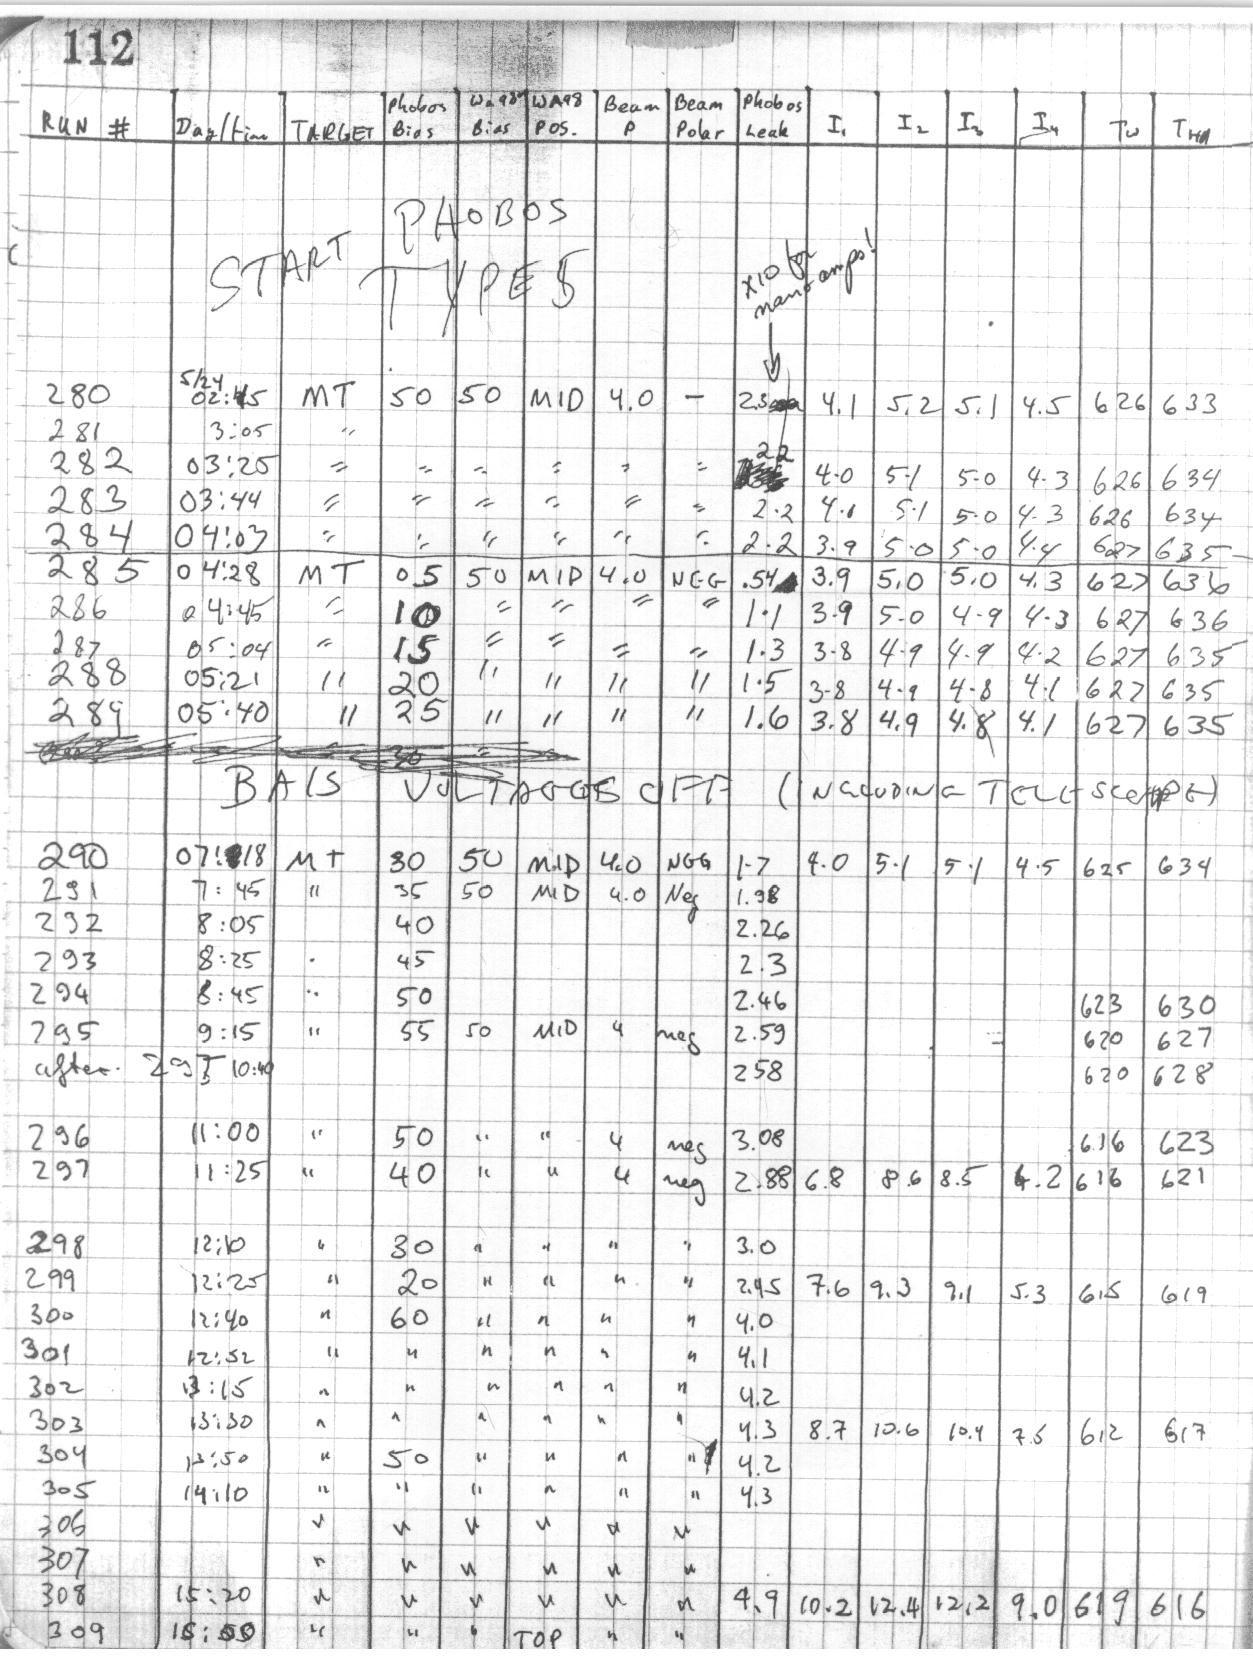 112
RUN # Day/time TARGET Phobos Bias Wa98 Bias WA98 POS. Beam P Beam Polar Phobos Leak I1 I2 I3 I4 Tw
PHOBOS
START TYPE 5
x10 for nano amps!
280 5/24 02:45 MT 50 50 MID 4.0 - 2.3 4.1 5.2 5.1 4.5 626 633
281 3:05 "
282 03:25 " " " " " " 22 4.0 5.1 5.0 4.3 626 634
283 03:44 " " " " " " 2.2 4.1 5.1 5.0 4.3 626 634
284 04:03 " " " " " " 2.2 3.9 5.0 5.0 4.4 627 635
285 04:28 MT 05 50 MID 4.0 NEG .54 3.9 5.0 5.0 4.3 627 636
286 04:45 " 10 " " " " 1.1 3.9 5.0 4.9 4.3 627 636
287 05:04 " 15 " " " " 1.3 3.8 4.9 4.9 4.2 627 635
288 05:21 " 20 " " " " 1.5 3.8 4.9 4.8 4.1 627 635
289 05:40 " 25 " " " " 1.6 3.8 4.9 4.8 4.1 627 635
BAIS VOLTAGES OFF (INCLUDING TELESCOPE)
290 07:18 MT 30 50 MID 4.0 NEG 1.7 4.0 5.1 5.1 4.5 625 634
291 7:45 " 35 50 MID 4.0 Neg 1.98
292 8:05 40 2.26
293 8:25 45 2.3
294 8:45 " 50 2.46 623 630
295 9:15 " 55 50 MID 4 neg 2.59 620 627
after 295 10:40 258 620 628
296 11:00 " 50 " " 4 neg 3.08 616 623
297 11:25 " 40 " " 4 neg 2.88 6.8 8.6 8.5 6.2 616 621
298 12:10 " 30 " " " " 3.0
299 12:25 " 20 " " " " 2.45 7.6 9.3 9.1 5.3 615 619
300 12:40 " 60 " " " " 4.0
301 12:52 " " " " " " 4.1
302 13:15 " " " " " " 4.2
303 13:30 " " " " " " 4.3 8.7 10.6 10.4 7.5 612 617
304 13:50 " 50 " " " " 4.2
305 14:10 " " " " " " 4.3
306 " " " " " "
307 " " " " " "
308 15:20 " " " " " " 4.9 10.2 12.4 12.2 9.0 619 616
309 " " " TOP " "